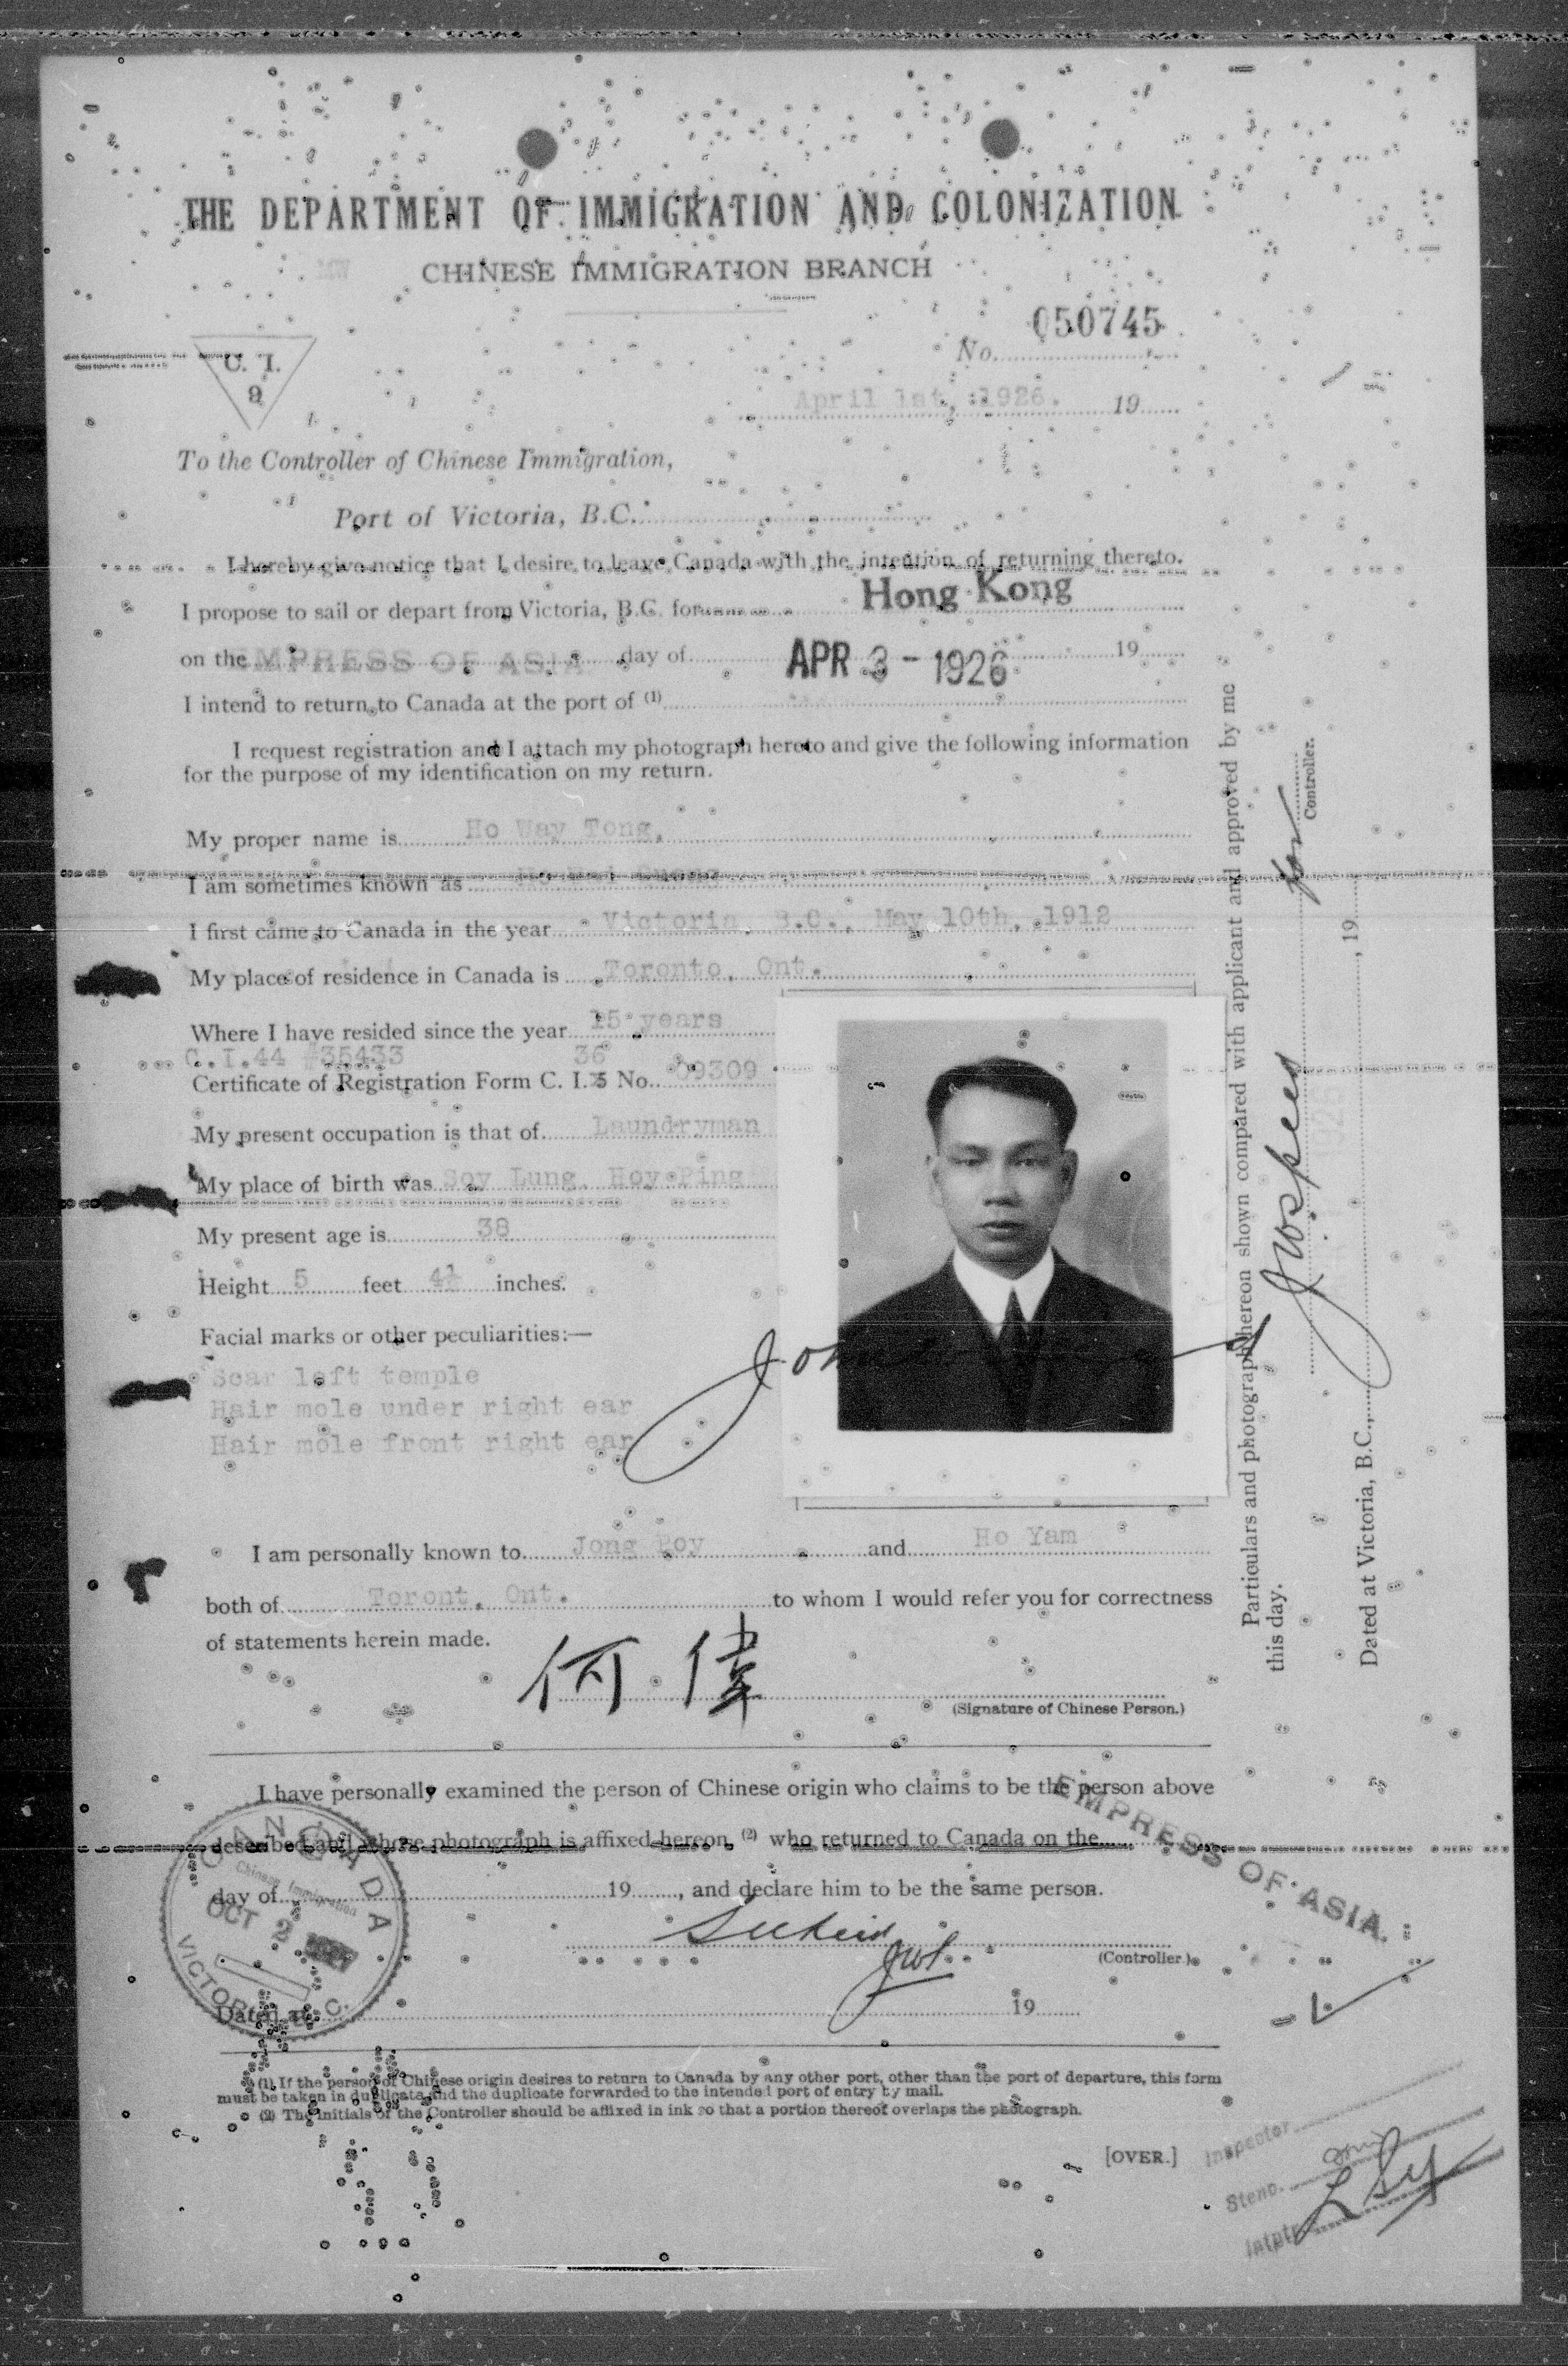 THE DEPARTMENT OF IMMIGRATION AND COLONIZATION
CHINESE IMMIGRATION BRANCH
050745
No.
C. I. 9
April 1st, 1926. 19
To the Controller of Chinese Immigration,
Port of Victoria, B.C.
I hereby give notice that I desire to leave Canada with the intention of returning thereto.
I propose to sail or depart from Victoria, B.C. for Hong Kong
on the EMPRESS OF ASIA day of APR 3 - 1926 19
I intend to return to Canada at the port of (1)
I request registration and I attach my photograph hereto and give the following information
for the purpose of my identification on my return.
My proper name is Ho Way Tong.
I am sometimes known as
I first came to Canada in the year Victoria, B.C., May 10th, 1912
My place of residence in Canada is Toronto, Ont.
Where I have resided since the year 15 years
C.I.44 #35433 36
Certificate of Registration Form C. I. 5 No. 09309
My present occupation is that of Laundryman
My place of birth was Soy Lung, Hoy Ping
My present age is 38
Height 5 feet 4½ inches.
Facial marks or other peculiarities:—
Scar left temple
Hair mole under right ear
Hair mole front right ear
I am personally known to Jong and Ho Yam
both of Toront, Ont. to whom I would refer you for correctness
of statements herein made.
何偉
(Signature of Chinese Person.)
I have personally examined the person of Chinese origin who claims to be the person above
described and whose photograph is affixed hereon, (2) who returned to Canada on the
day of 19, and declare him to be the same person.
(Controller.)
Dated at 19
EMPRESS OF ASIA.
CANADA
Chinese Immigration
OCT 2
VICTORIA B.C.
(1) If the person of Chinese origin desires to return to Canada by any other port, other than the port of departure, this form
must be taken in duplicate and the duplicate forwarded to the intended port of entry by mail.
(2) The initials of the Controller should be affixed in ink so that a portion thereof overlaps the photograph.
[OVER.]
Inspector
Steno.
Intptr.
Particulars and photograph hereon shown compared with applicant and approved by me
this day.
Controller.
Dated at Victoria, B.C., 19